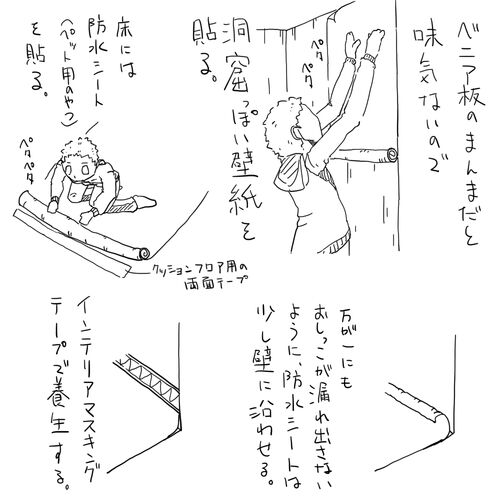 ベニア板のまんまだと
味気ないので
洞窟っぽい壁紙を
貼る。
ペタ
ペタ
床には
防水シート
(ペット用のやつ)
を貼る。
ペタ
ペタ
クッションフロア用の
両面テープ
万が一にも
おしっこが漏れ出さない
ように、防水シートは
少し壁に沿わせる。
インテリアマスキング
テープで養生する。